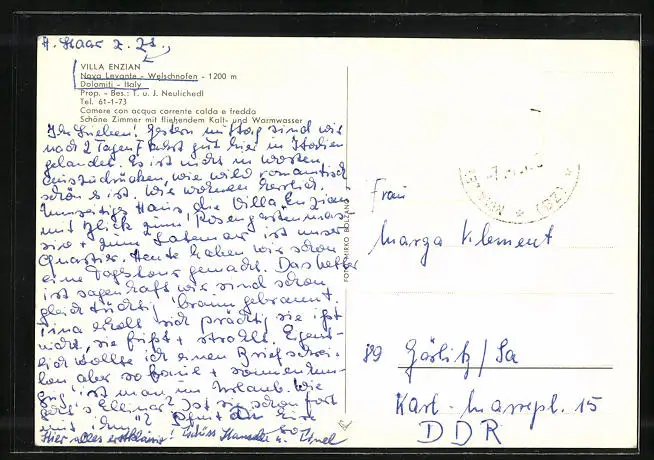 A. Haar z. Zt.,
VILLA ENZIAN
Nova Levante - Welschnofen - 1200 m
Dolomiti - Italy
Prop. - Bes.: T. u. J. Neulichedl
Tel. 61-1-73
Camere con acqua corrente calda e fredda
Schöne Zimmer mit fließendem Kalt- und Warmwasser
Ihr Lieben! Gestern mittag sind wir
nach 2 Tagen Fahrt gut hier in Italien
gelandet. Es ist nicht in Worten
auszudrücken, wie wild romantisch
schön es ist. Wir wohnen herrlich.
Haus die Villa Enzian
mit Blick zum Rosengarten
+ zum Latemar ist unser
Quartier. Heute haben wir schon
eine Tagestour gemacht. Das Wetter
ist sagenhaft wir sind schon
gleich tüchtig braun gebrannt.
Tina erholt sich prächtig sie ißt
nicht, sie frißt + strahlt. Eigent-
lich wollte ich einen Brief schrei-
ben aber so faul +
ist man im Urlaub. Wie
geht's Ist sie schon fort
mit ihm?
Hier alles erstklassig! Tschüss u.
FOTO MIRKO BOLZANO
(BZ)
Frau
Marga Klement
89 Görlitz/Sa
Karl-Marxpl. 15
DDR